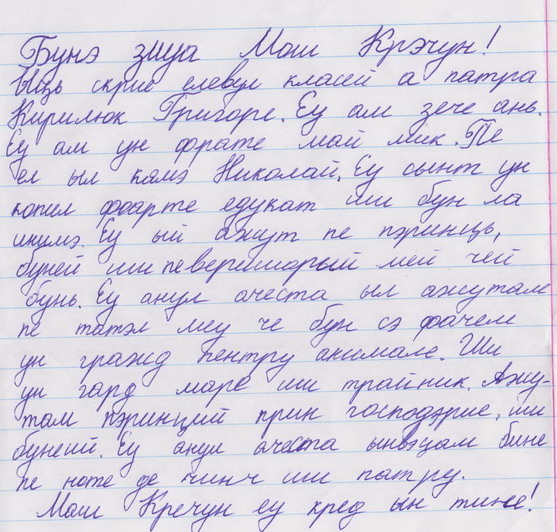 Бунэ зиуа Мош Крэчун!
Ыць скрие елевул класей а патра
Кирилюк Григоре. Еу ам зече ань.
Еу ам ун фрате май мик. Пе
ел ыл камэ Николай. Еу сынт ун
копил фоарте едукат ши бун ла
инимэ. Еу ый ажут пе пэринць,
буней ши певеришорый мей чей
бунь. Еу анул ачеста ыл ажутам
пе татэл меу че бун сэ фачем
ун гражд пентру анимале. Ши
ун гард маре ши трайник. Ажу-
там пэринций прин господэрие, ши
бунеий. Еу анул ачеста ынвэцам бине
пе ноте де чинч ши патру.
Мош Кречун еу кред ын тине!